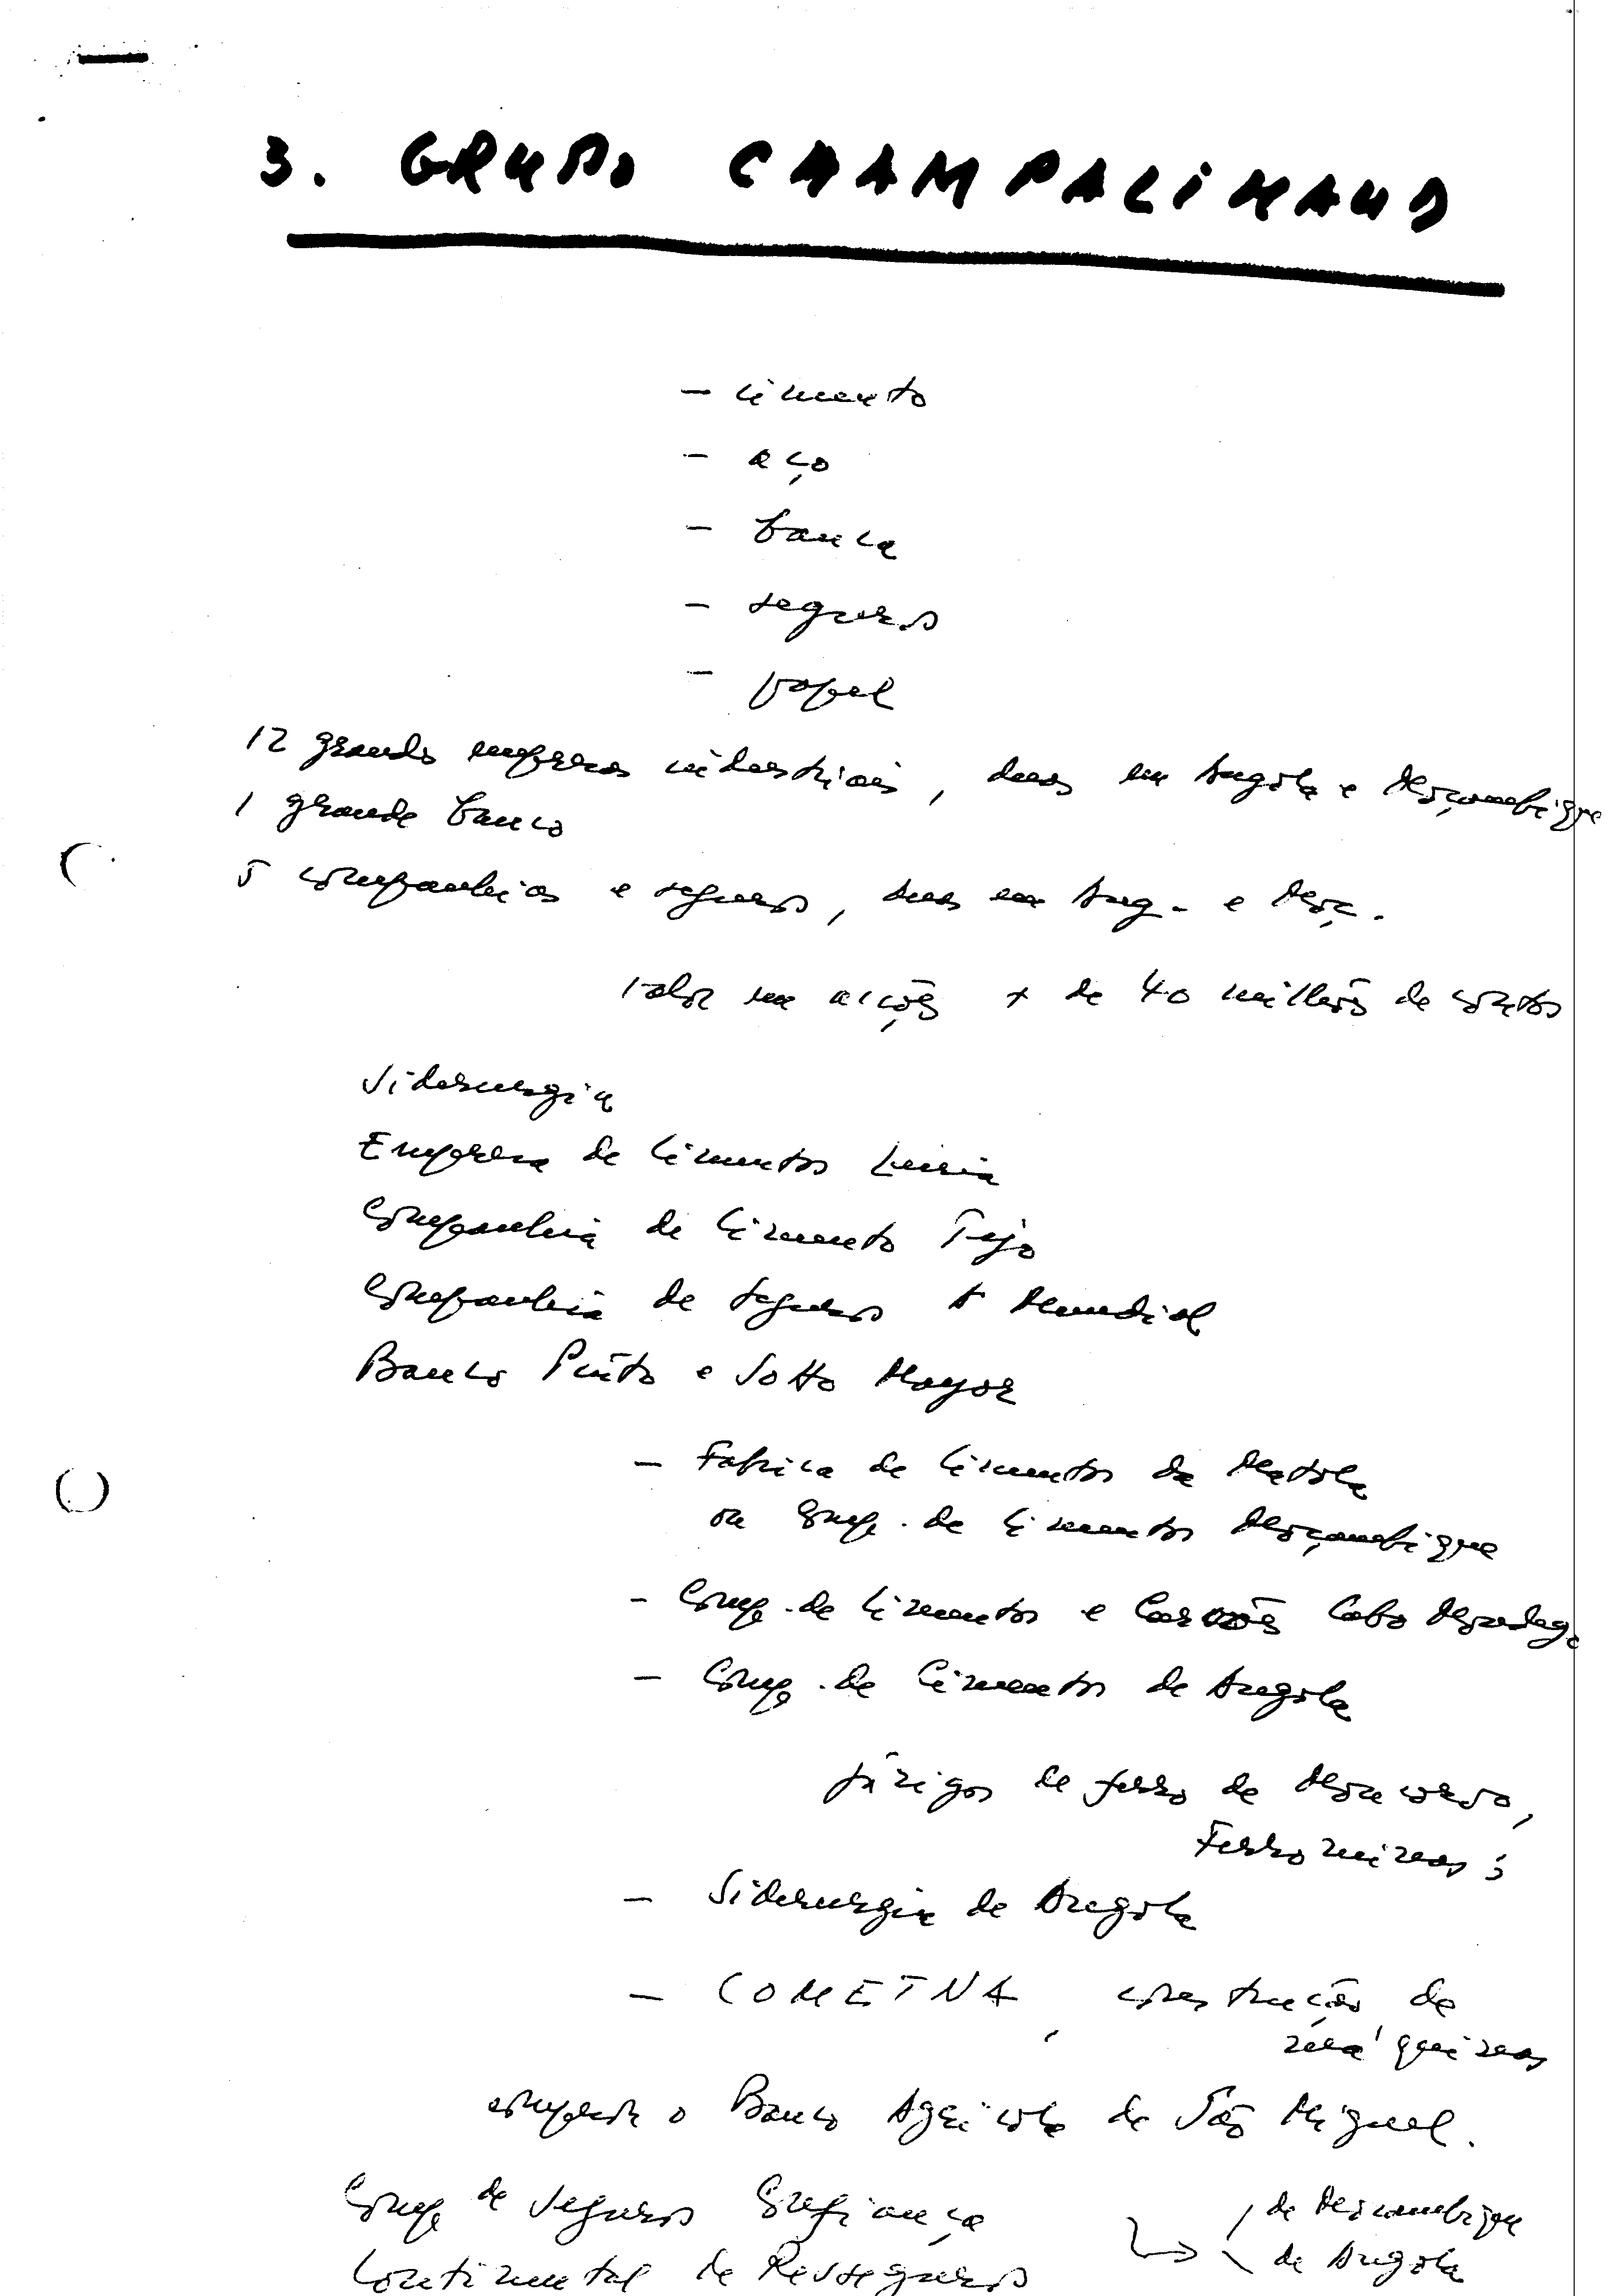 3. GRUPO CHAMPALIMAUD
- cimento
- aço
- banca
- seguros
- papel
12 grandes empresas industriais, duas em Angola e Moçambique
1 grande banco
5 companhias e seguros, duas em Ang. e Moç.
valor em acções + de 40 milhões de contos
Siderurgia
Empresa de Cimentos Leiria
Companhia de Cimento Tejo
Companhia de Seguros A Mundial
Banco Pinto e Sotto Mayor
- Fabrica de Cimentos da Matola
ou Comp. de Cimentos Moçambique
- Comp. de Cimentos e Carvões Cabo Mondego
- Comp. de Cimentos de Angola
jazigos de ferro de Moncorvo,
Ferrominas;
- Siderurgia de Angola
- COMETNA, construção de
máquinas
comprou o Banco Agricola de São Miguel.
Comp de Seguros Confiança
de Moçambique
Continental de Resseguros
de Angola